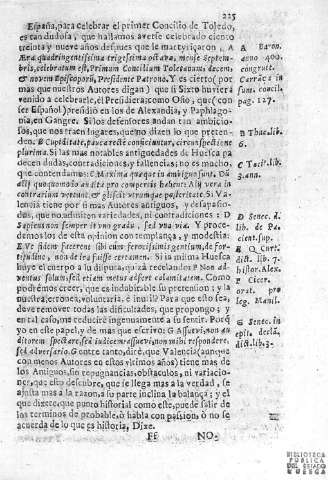 225
España, para celebrar el primer Concilio de Toledo,
es tan dudosa, que hallamos averse celebrado ciento
treinta y nueve años despues que le martyrizaron, A
Æra quadringentesima trigesima octava, mense Septem-
bris, celebratum est, Primum Concilium Toletanum, decem,
& novem Episcoporũ, Præsidente Patrono. Y es cierto (por
mas que nuestros Autores digan) que si Sixto huviera
venido à celebrarle, èl Presidiera: como Osio, que (con
ser Español) presidiò en los de Alexandria, y Paphlago-
nia, en Gangre. Si los defensores andan tan ambicio-
sos, que nos traen lugares, que no dizen lo que preten-
den. B Cupiditate, pauca rectè conficiuntur, circunspectione
plurima. Si las mas notables antiguedades de Huesca pa
decen dudas, contradiciones, y fallencias; no es mucho,
que contendamos: C Maxima quæque in ambiguo sunt. Dũ
alij quoquomodo audita pro compertis habent: Alij vera in
contrarium vertunt, & gliscit utrumque posteritate. Si Va-
lencia tiene por sì mas Autores antiguos, y desapassio-
dos, que no admiten variedades, ni contradiciones: D
Sapiens non semper it uno gradu, sed una via. Y proce-
demos los de esta opinion con templança, y modestia:
E Ve fidem fecerent sibi cum ferocissimis gentium, de for-
titudine, non de ira fuisse certamen. Si la misma Huesca
huye el cuerpo à la disputa, quizà recelando: F Non ad-
ventus solum, sed etiam metus adfert calamitatem. Como
podrèmos creer, que es indubitable su pretension; y la
nuestra, erronea, voluntaria, è inutil? Para que esto sea,
deve remover todas las dificultades, que propongo; y
en tal caso, me reducirè ingenuamente à su sentir. Porq̃
yo en este papel, y de mas que escrivo: G Assurvi, non au
ditorem spectare, sed iudicem: assurvi, non mihi respondere,
sed adversario. G entre tanto, dirè, que Valencia (aunque
con menos Autores en estos ultimos años) tiene mas de
los Antiguos, sin repugnancias, obstaculos, ni variacio-
nes; que esto descubre, que se llega mas à la verdad, se
ajusta mas à la razon, à su parte inclina la balança; y el
que dixere, que punto historial como este, puede salir de
los terminos de probable, ò habla con passion, ò no se
acuerda de lo que es historia, Dixe.
FF NO-
A Baron.
anno 400.
congruit.
Carrãça in
sum. concil.
pag. 127.
B Thuc. lib.
6.
C Tacit. lib.
3. ann.
D Senec. d.
lib. de Pa-
cient. sup.
E Q. Curt.
dict. lib. 7.
histor. Alex.
F Cicer.
orat. pro
leg. Manil.
G Senec. in
epist. declã.
dict. lib. 3.
BIBLIOTECA
PUBLICA
DEL ESTADO
HUESCA